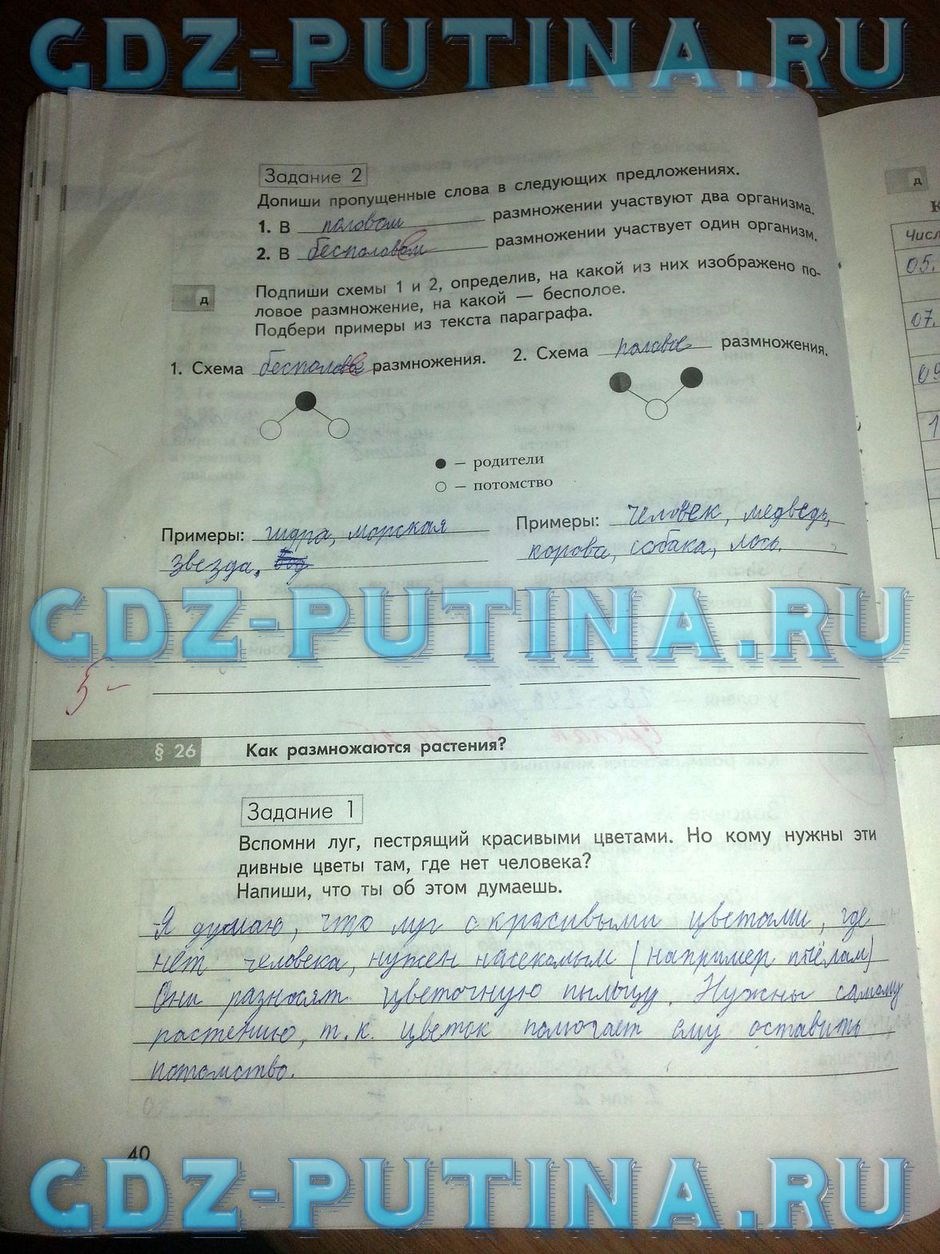 GDZ-PUTINA.RU
Задание 2
Допиши пропущенные слова в следующих предложениях.
1. В половом размножении участвуют два организма.
2. В бесполовом размножении участвует один организм.
д
Подпиши схемы 1 и 2, определив, на какой из них изображено по-
ловое размножение, на какой — бесполое.
Подбери примеры из текста параграфа.
1. Схема бесполове размножения.
2. Схема половое размножения.
— родители
— потомство
Примеры: гидра, морская
звезда,
Примеры: человек, медведь,
корова, собака, лось.
GDZ-PUTINA.RU
5-
§ 26 Как размножаются растения?
Задание 1
Вспомни луг, пестрящий красивыми цветами. Но кому нужны эти
дивные цветы там, где нет человека?
Напиши, что ты об этом думаешь.
Я думаю, что луг с красивыми цветами, где
нет человека, нужен насекомым (например пчёлам)
Они разносят цветочную пыльцу. Нужны самому
растению, т.к. цветок помогает ему оставить
потомство.
40
GDZ-PUTINA.RU
д
К
Числ
05.
07.
09
1